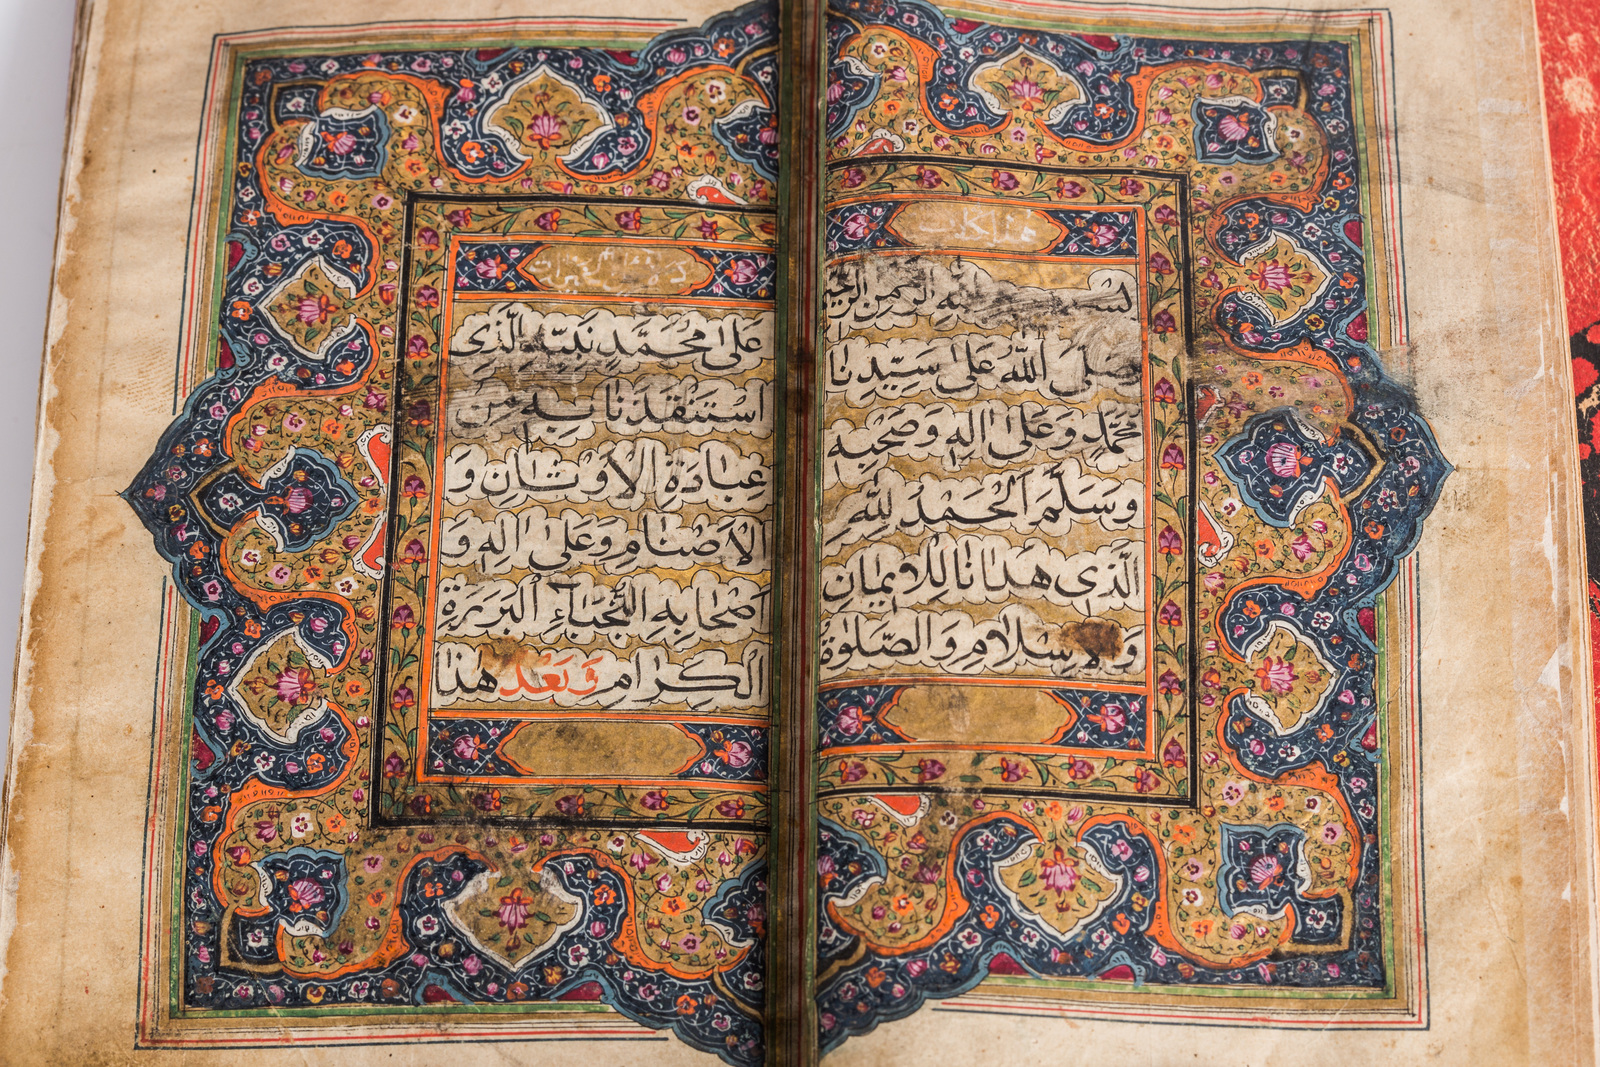 هذا كتاب
بسم الله الرحمن الرحيم
وَصَلَّى اللّٰهُ عَلٰى سَيِّدِنَا
مُحَمَّدٍ وَعَلٰى اٰلِهِ وَصَحْبِهِ
وَسَلَّمَ اَلْحَمْدُ لِلّٰهِ
الَّذِى هَدٰانَا لِلْاِيمَانِ
وَالْاِسْلَامِ وَالصَّلٰوةُ
عَلٰى مُحَمَّدٍ نَبِيِّهِ الَّذِى
اسْتَنْقَذَنَا بِهِ مِنْ
عِبَادَةِ الْاَوْثَانِ وَ
الْاَصْنَامِ وَعَلٰى اٰلِهِ وَ
اَصْحَابِهِ النُّجَبَاءِ الْبَرَرَةِ
الْكِرَامِ وَبَعْدُ هٰذَا